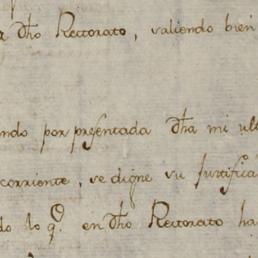 a dho Rectorato, valiendo bien
ndo por presentada dha mi ult
corriente, se digne su justifica
do lo q.e en dho Rectorato ha